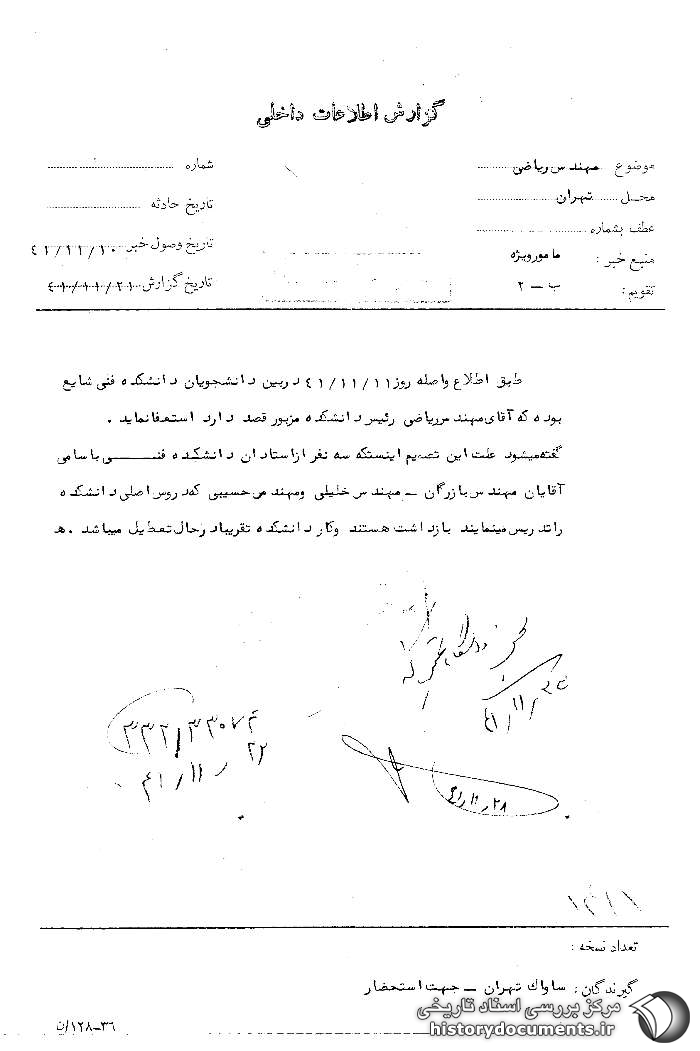 گزارش اطلاعات داخلی
موضوع مهندس ریاضی
محل تهران
عطف بشماره
منبع خبر : مامور ویژه
تقویم : ب ــ ۲
شماره
تاریخ حادثه
تاریخ وصول خبر ۴۱/۱۱/۱۰
تاریخ گزارش ۴۱/۱۱/۲۱
طبق اطلاع واصله روز ۴۱/۱۱/۱۱ دربین دانشجویان دانشکده فنی شایع
بوده که آقای مهندس ریاضی رئیس دانشکده مزبور قصد دارد استعفا نماید .
گفته میشود علت این تصمیم اینستکه سه نفر ازاستادان دانشکده فنـــی باسامی
آقایان مهندس بازرگان ــ مهندس خلیلی ومهندس حسیبی که دروس اصلی دانشکده
راتدریس مینمایند بازداشت هستند وکار دانشکده تقریبا درحال تعطیل میباشد . ه
۴۱/۱۱/۳۰
۳۳۲/۳۳۰۷۴
۴۱/۱۱/۲۲
۴۱/۱۱/۲۸
تعداد نسخه :
گیرندگان : ساواک تهران ــ جهت استحضار
۳۶-۱۲۸/ن
مرکز بررسی اسناد تاریخی
historydocuments.ir